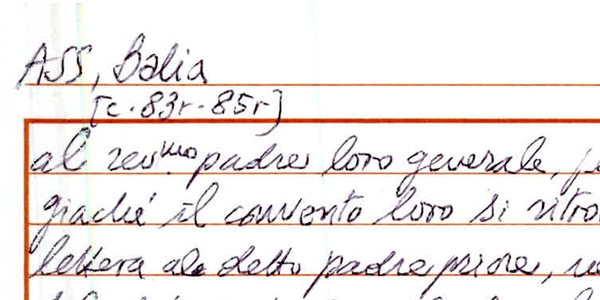 ASS, Balia
[c. 83r-85r]
al rev.mo padre loro generale,
giaché il convento loro si ritro
lettera al detto padre priore,